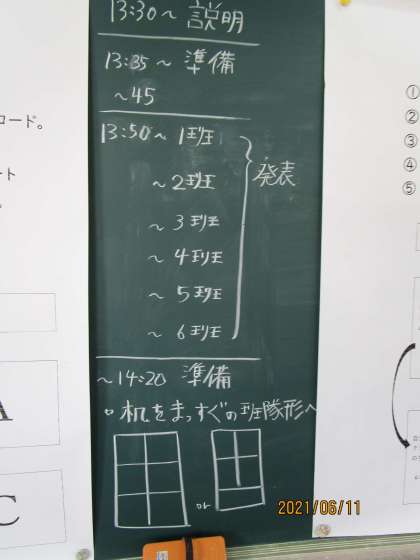 13:30～ 説明
13:35～ 準備
～45
13:50～ 1班
～2班
～3班
～4班
～5班
～6班
発表
～14:20 準備
○机をまっすぐの班隊形へ
or
2021/06/11
コード。
ート
A
C
①
②
③
④
⑤